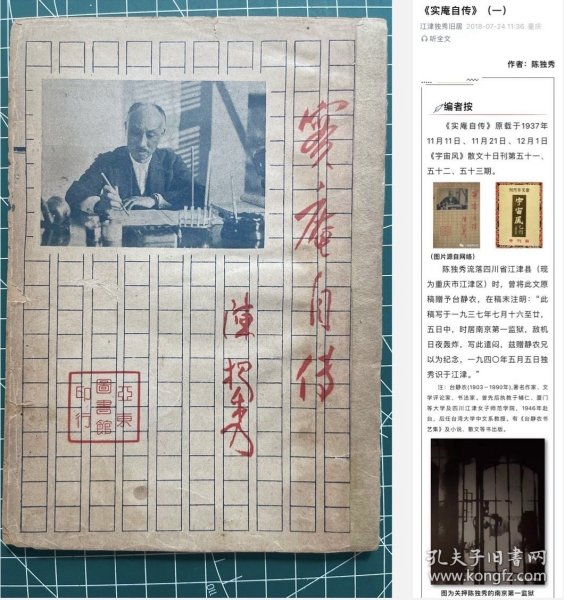 實庵自传
陳獨秀
亞東
圖書館
印行
《实庵自传》（一）
江津独秀旧居 2018-07-24 11:36 重庆
听全文
作者：陈独秀
编者按
《实庵自传》原载于1937年
11月11日、11月21日、12月1日
《宇宙风》散文十日刊第五十一、
五十二、五十三期。
宇宙风
（图片源自网络）
陈独秀流落四川省江津县（现
为重庆市江津区）时，曾将此文原
稿赠予台静农，在稿末注明：“此
稿写于一九三七年七月十六至廿
五日中，时居南京第一监狱，敌机
日夜轰炸，写此遣闷，兹赠静农兄
以为纪念，一九四〇年五月五日独
秀识于江津。”
注：台静农(1903－1990年),著名作家、文
学评论家、书法家。曾先后执教于辅仁、厦门
等大学及四川江津女子师范学院，1946年赴
台，后任台湾大学中文系教授。有《台静农书
艺集》及小说、散文等书出版。
孔夫子旧书网
www.kongfz.com
图为关押陈独秀的南京第一监狱